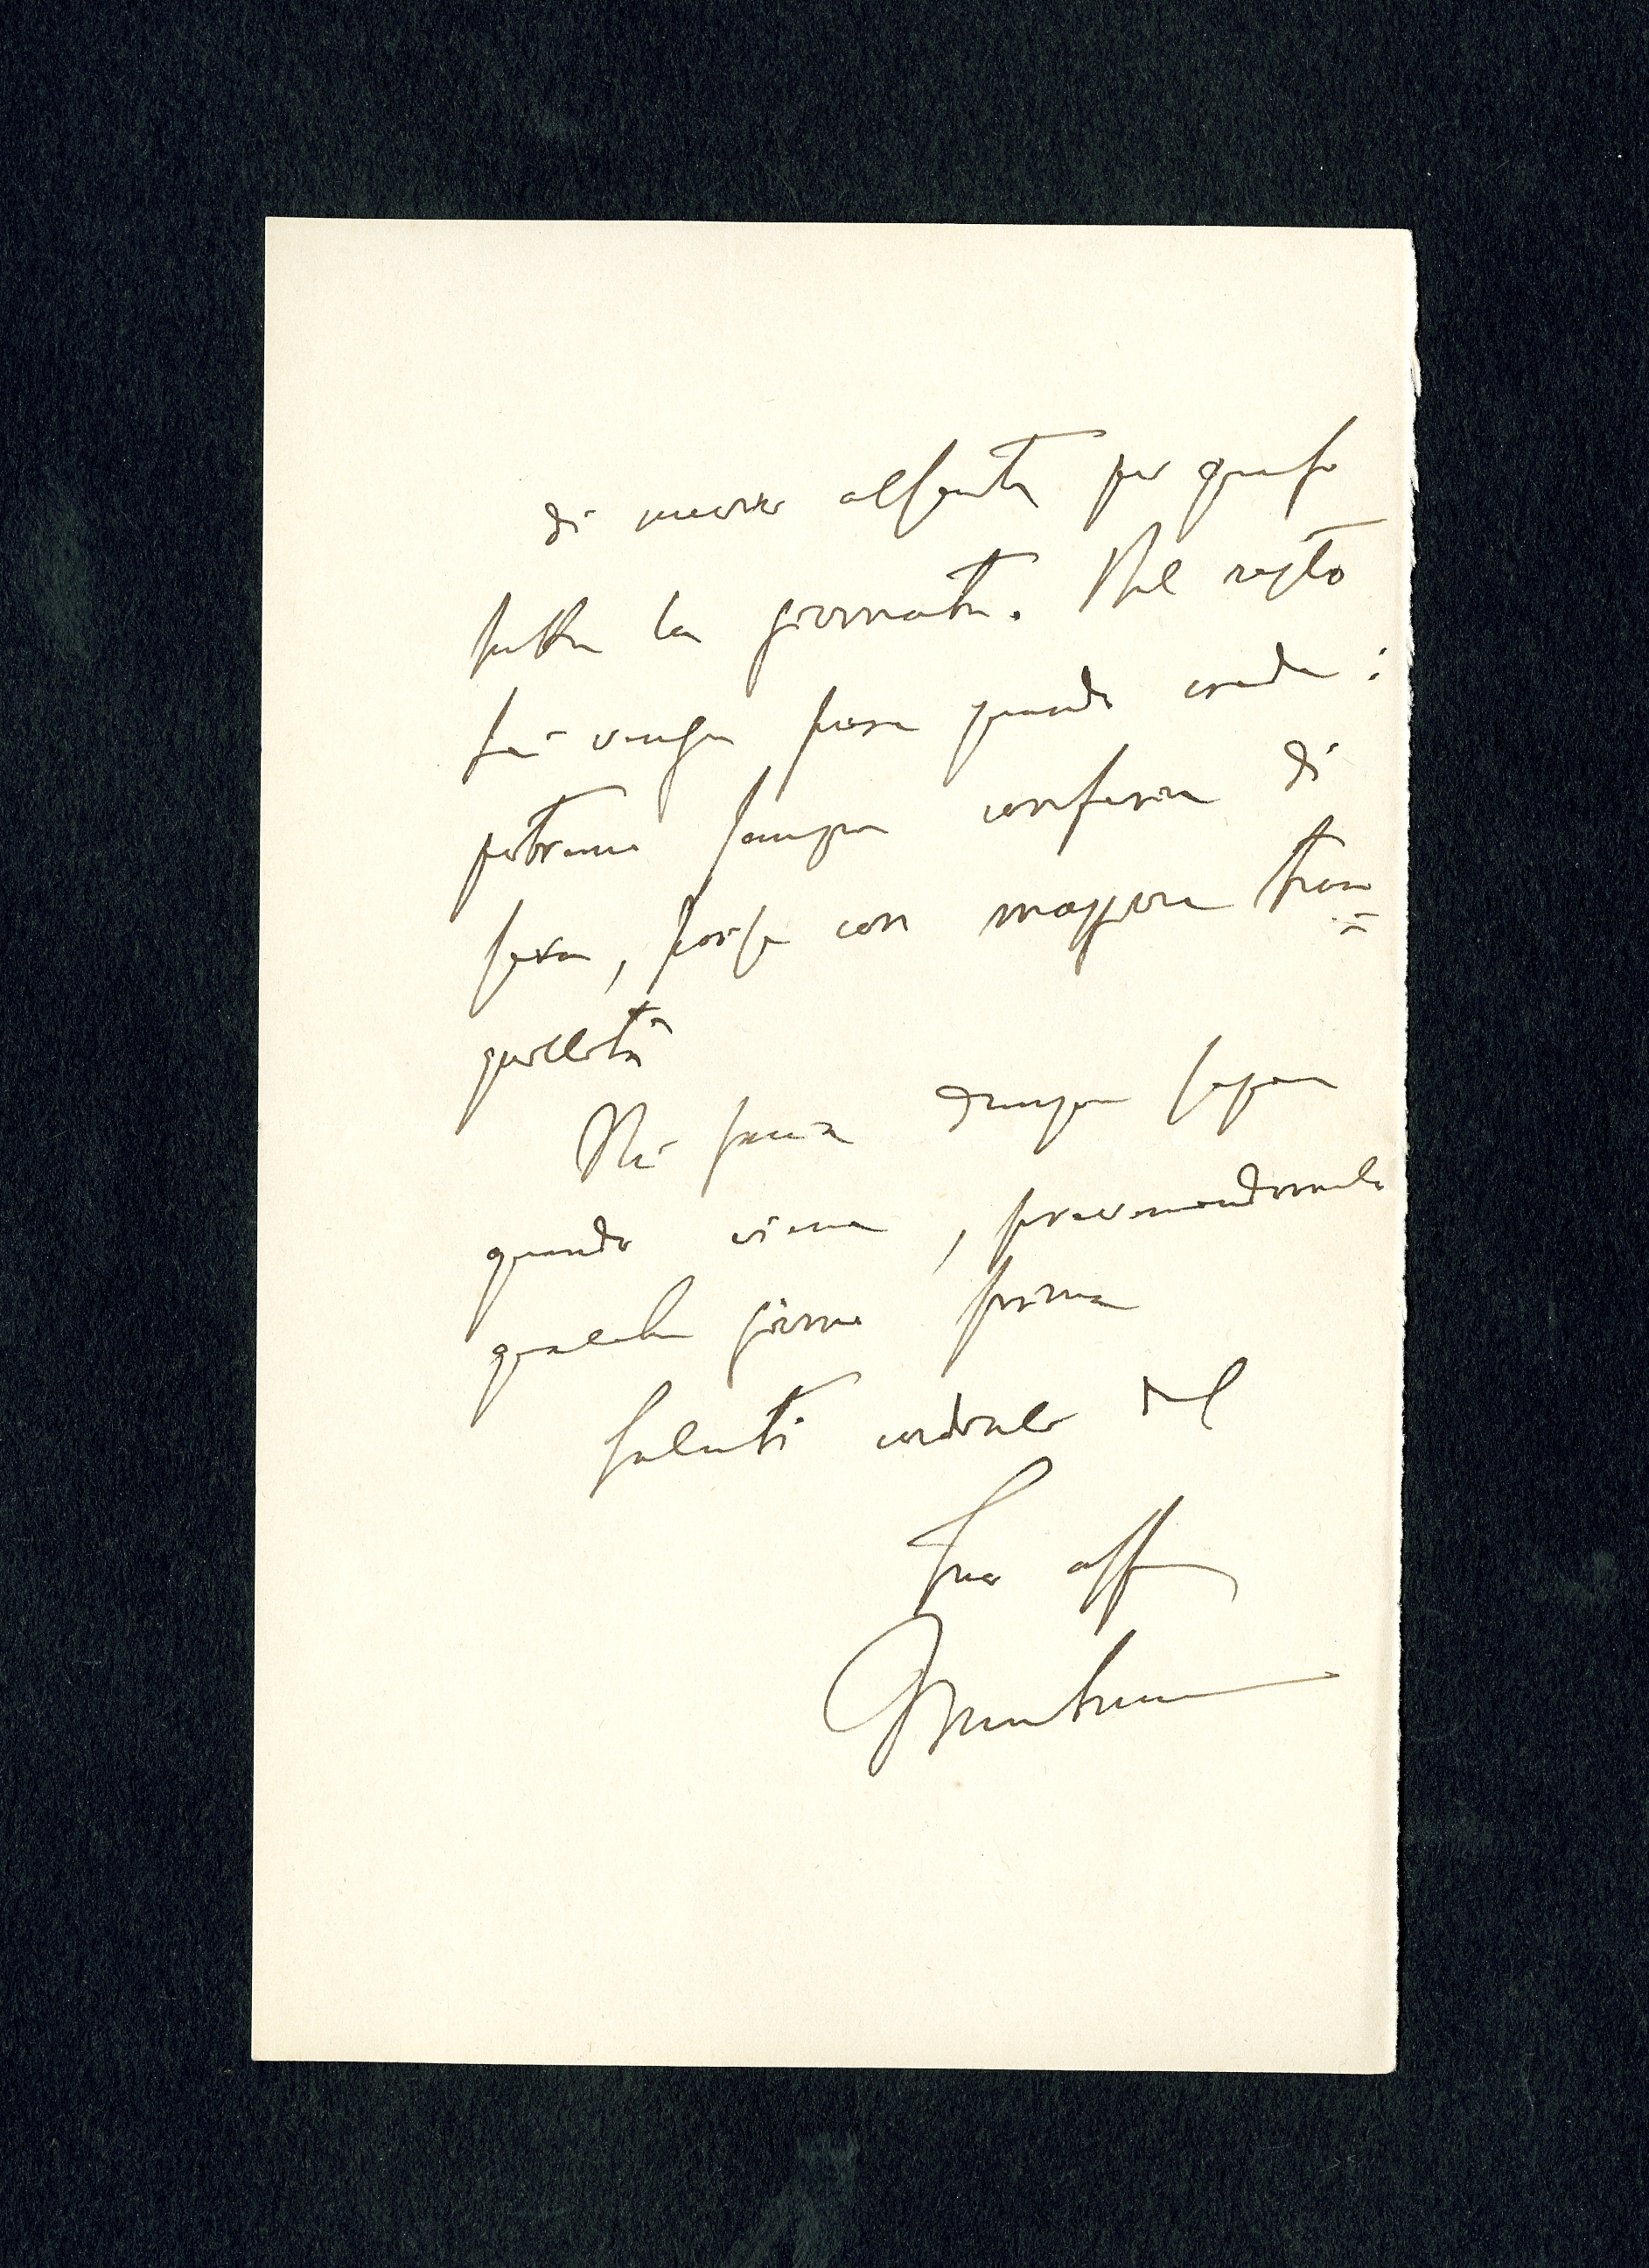 di nuovo assente per quasi
tutta la giornata. Nel resto
Lei venga pure quando crede:
potremo sempre conferire di
sera, forse con maggiore tran=
quillità
Mi faccia dunque sapere
quando viene,
qualche giorno prima
Saluti cordiali dal
Suo aff